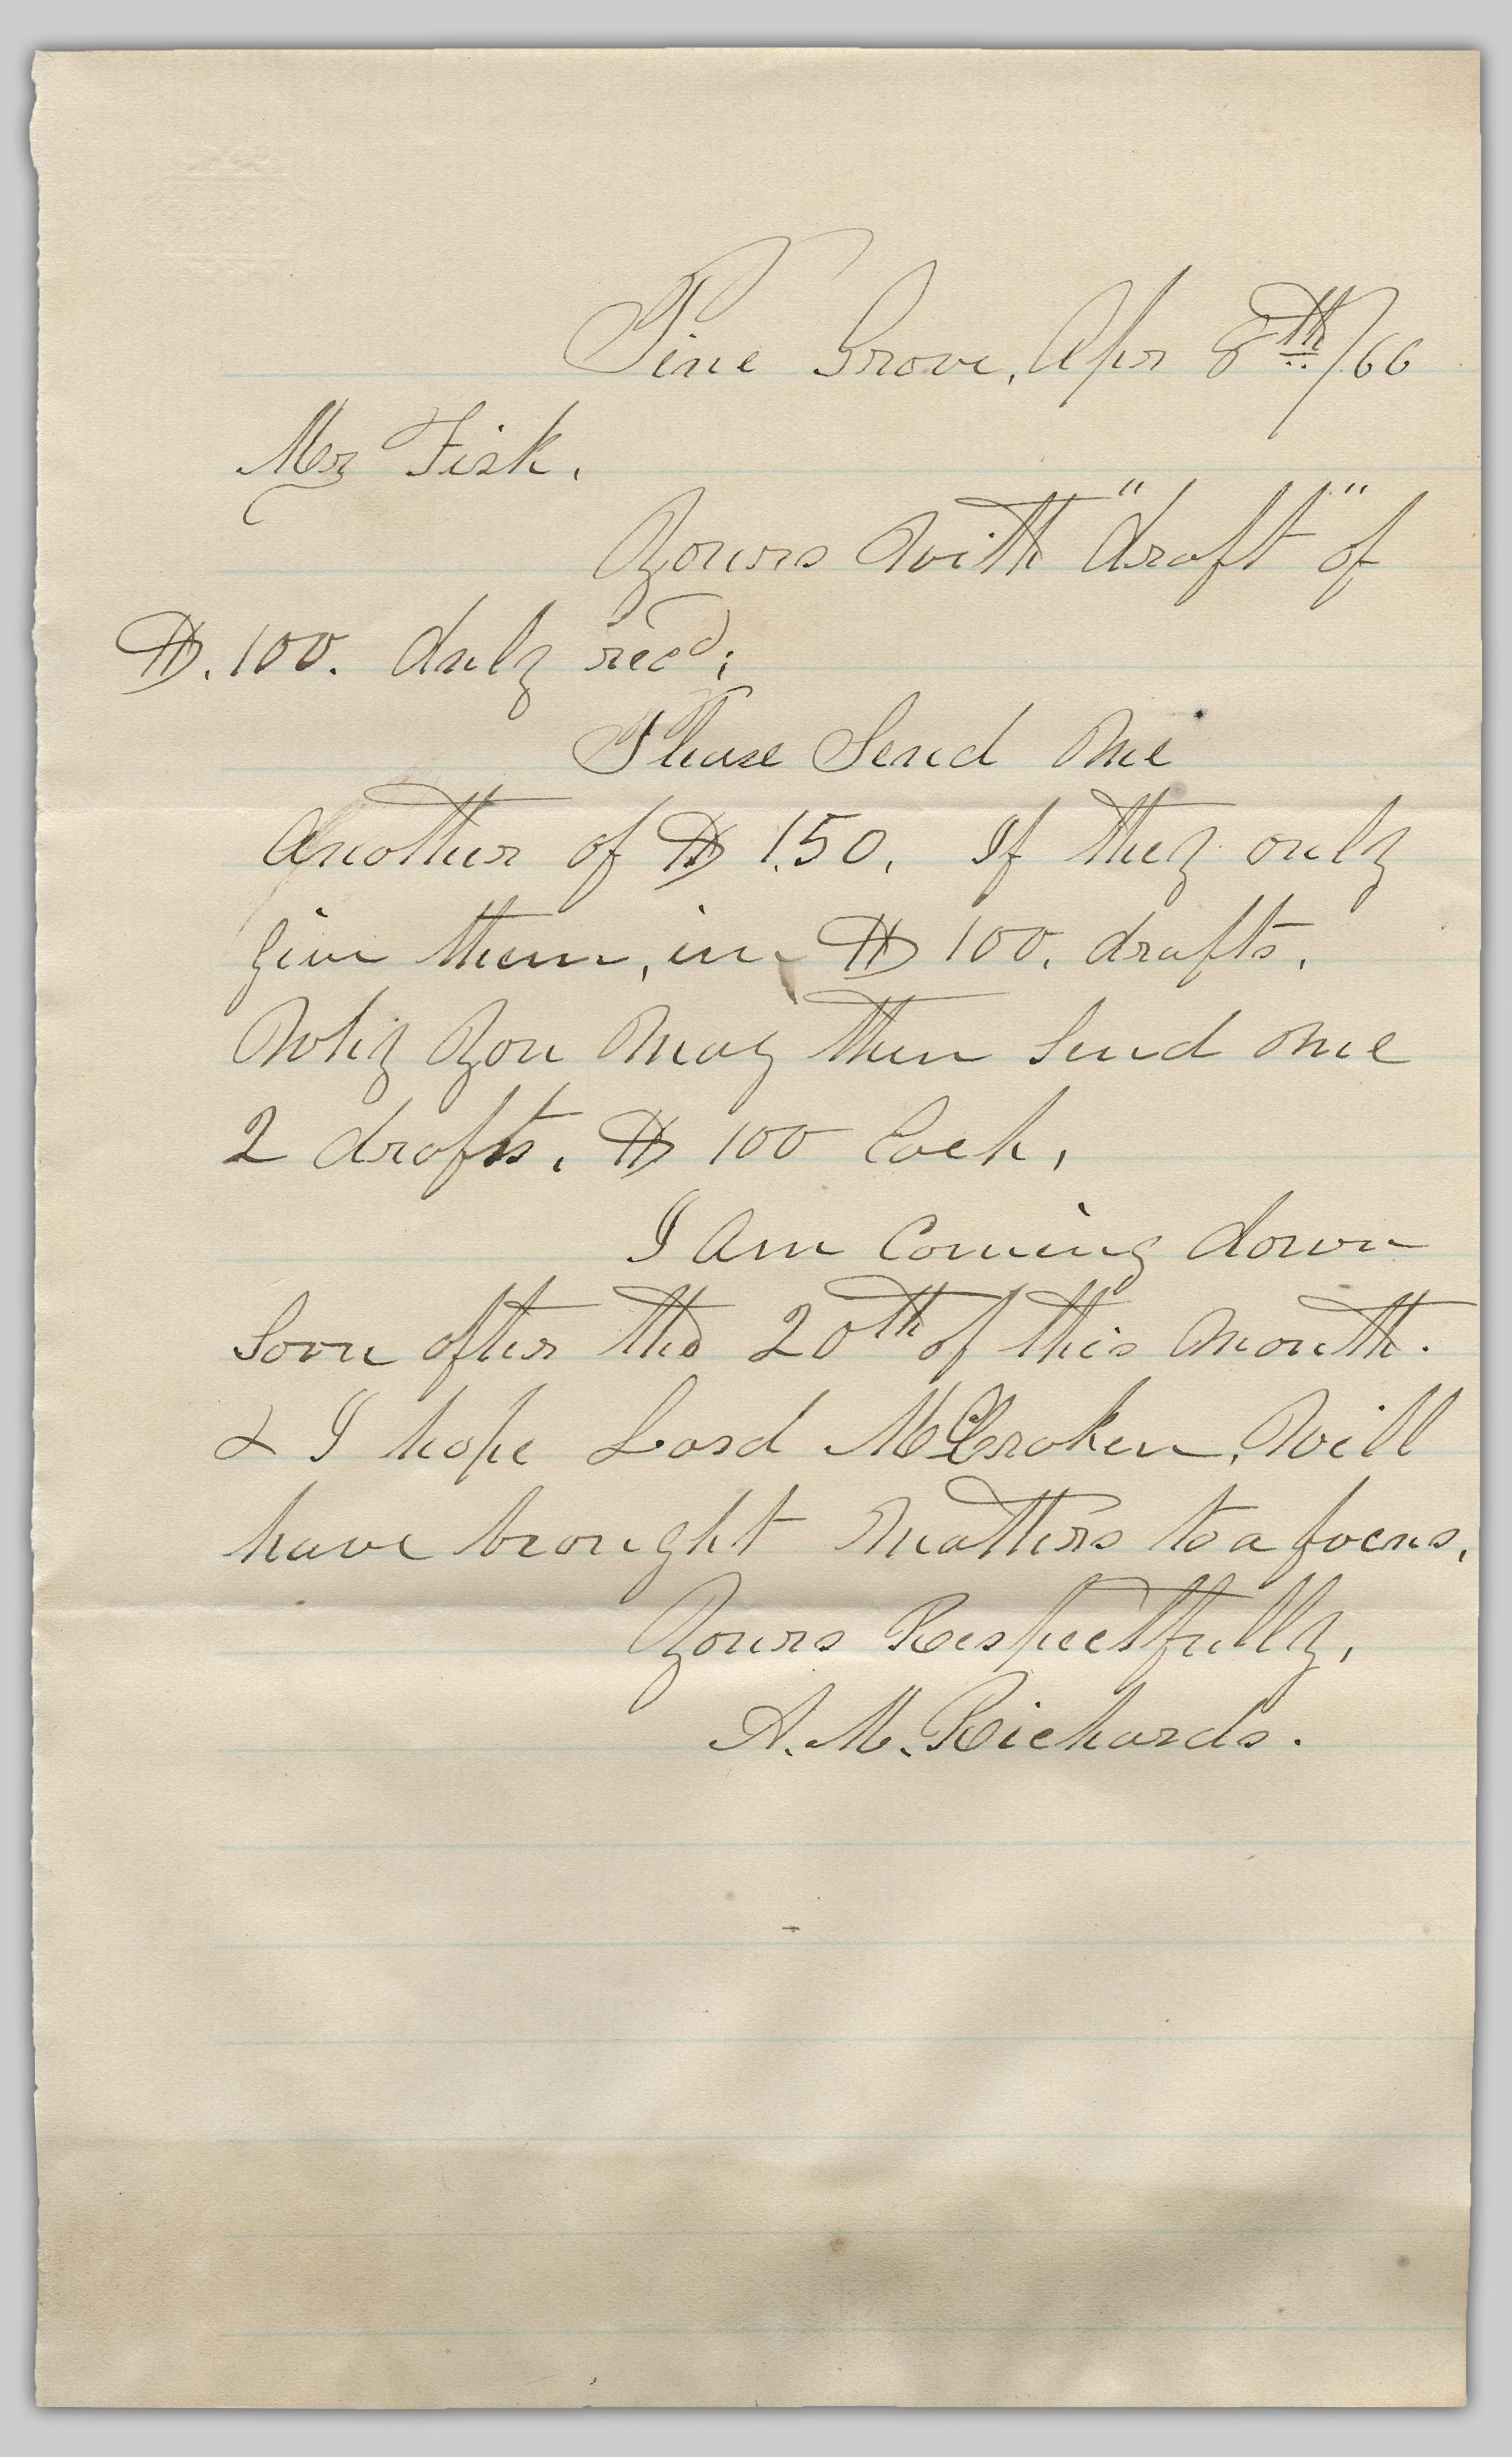 Pine Grove, Apr 8th/66
Mr Fisk.
Yours With "draft" of
$.100. duly recd;
Please Send Me
Another of $ 150. If they only
give them, in $ 100. drafts.
Why You May then Send Me
2 drafts. $ 100 Each,
I Am Coming down
Soon after the 20th of this Month.
& I hope Lord McCroken, Will
have brought Matters to a focus.
Yours Respectfully,
A. M. Richards.